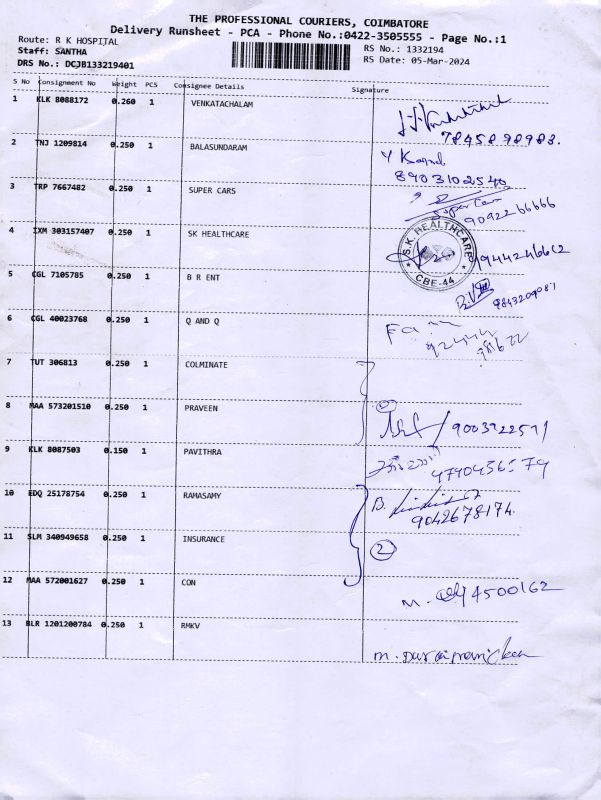 THE PROFESSIONAL COURIERS, COIMBATORE
Delivery Runsheet - PCA - Phone No.:0422-3505555 - Page No.:1
Route: R K HOSPITAL
Staff: SANTHA
DRS No.: DCJB133219401
RS No.: 1332194
RS Date: 05-Mar-2024
S No Consignment No Weight PCS Consignee Details Signature
1 KLK 8088172 0.260 1 VENKATACHALAM
7845898983.
2 TNJ 1209814 0.250 1 BALASUNDARAM
8903102540
3 TRP 7667482 0.250 1 SUPER CARS
Super Cars
9092266666
4 IXM 303157407 0.250 1 SK HEALTHCARE
S.K. HEALTHCARE
CBE-44
5 CGL 7105785 0.250 1 B R ENT
6 CGL 40023768 0.250 1 Q AND Q
7 TUT 306813 0.250 1 COLMINATE
8 MAA 573201510 0.250 1 PRAVEEN
9 KLK 8087503 0.150 1 PAVITHRA
10 EDQ 25178754 0.250 1 RAMASAMY
B.
9042678174.
11 SLM 340949658 0.250 1 INSURANCE
2
12 MAA 572001627 0.250 1 CON
13 BLR 1201200784 0.250 1 RMKV